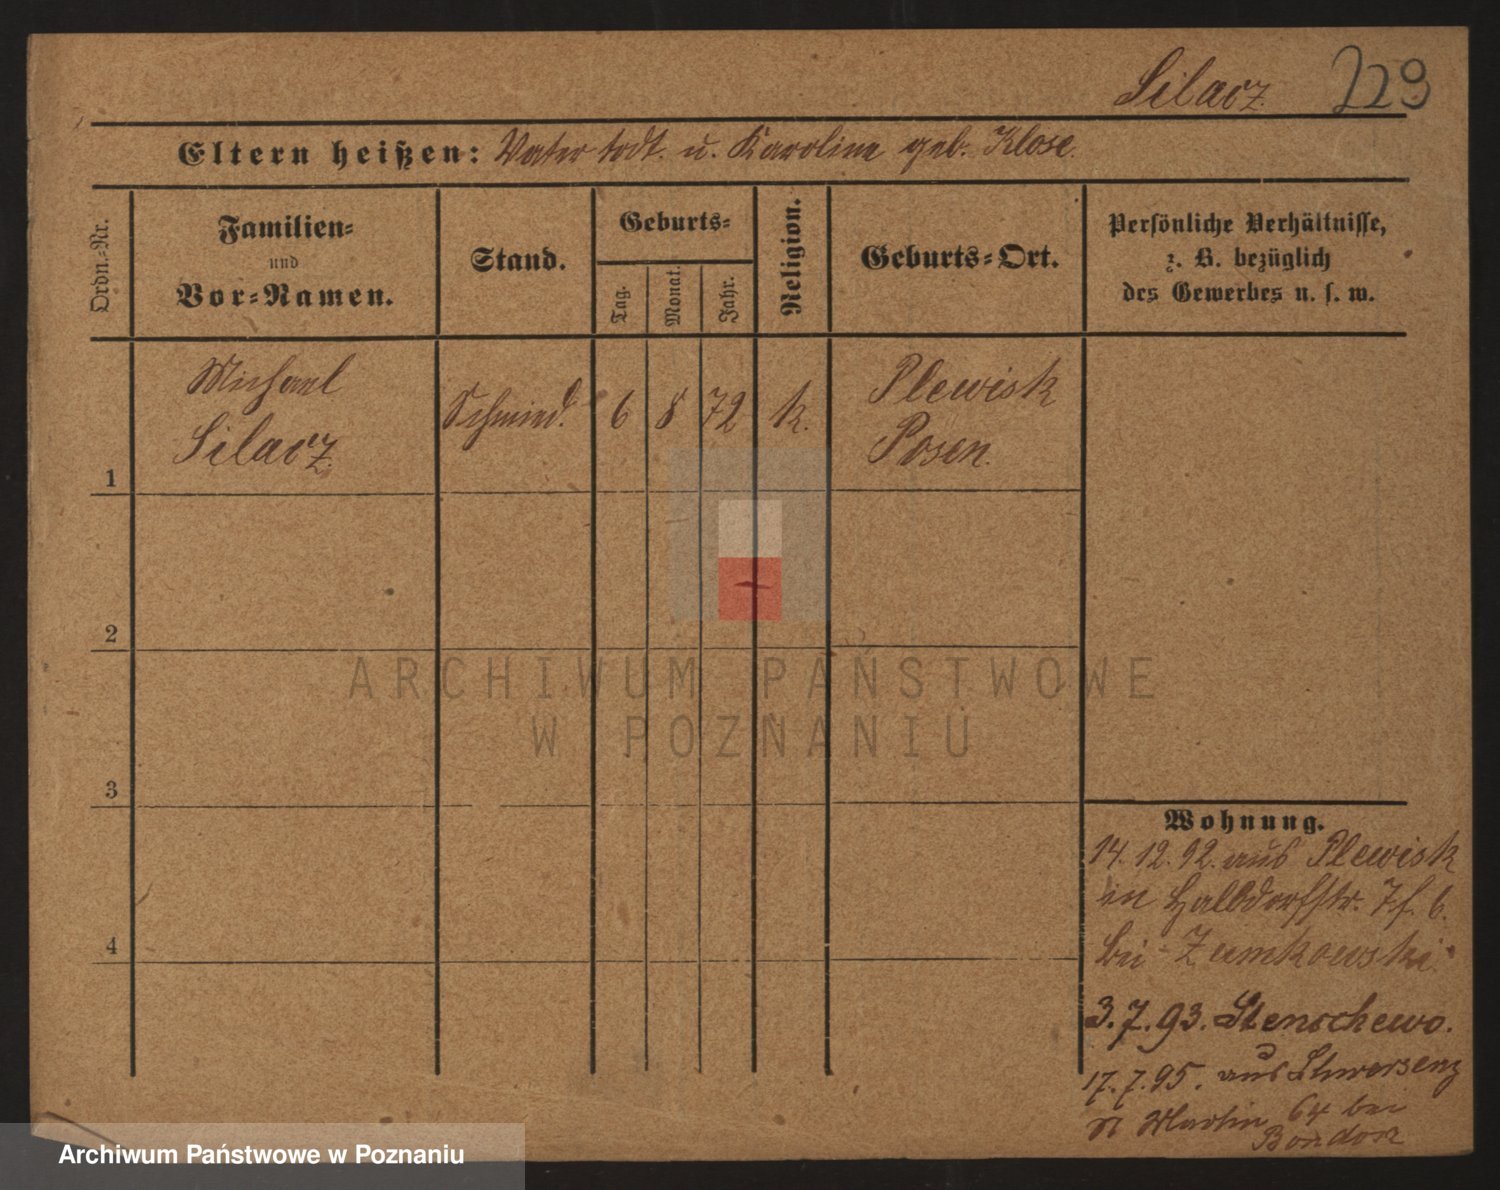 Silacz. 229
Eltern heißen: Vater todt. u. Karoline geb. Klose.
Ordn.-Nr.
Familien-
und
Vor-Namen.
Stand.
Geburts-
Tag.
Monat.
Jahr.
Religion.
Geburts-Ort.
Persönliche Verhältnisse,
z. B. bezüglich
des Gewerbes u. s. w.
1
Michael
Silacz
Schmied.
6
8
72
k.
Plewisk
Posen.
2
3
4
ARCHIWUM PAŃSTWOWE
W POZNANIU
Wohnung.
14. 12. 92. aus Plewisk
in Halbdorfstr. 7 f. 6.
bei Zumkowski.
3. 7. 93. Stenschewo.
17. 7. 95. aus Schwersenz
St Martin 64 bei
Archiwum Państwowe w Poznaniu